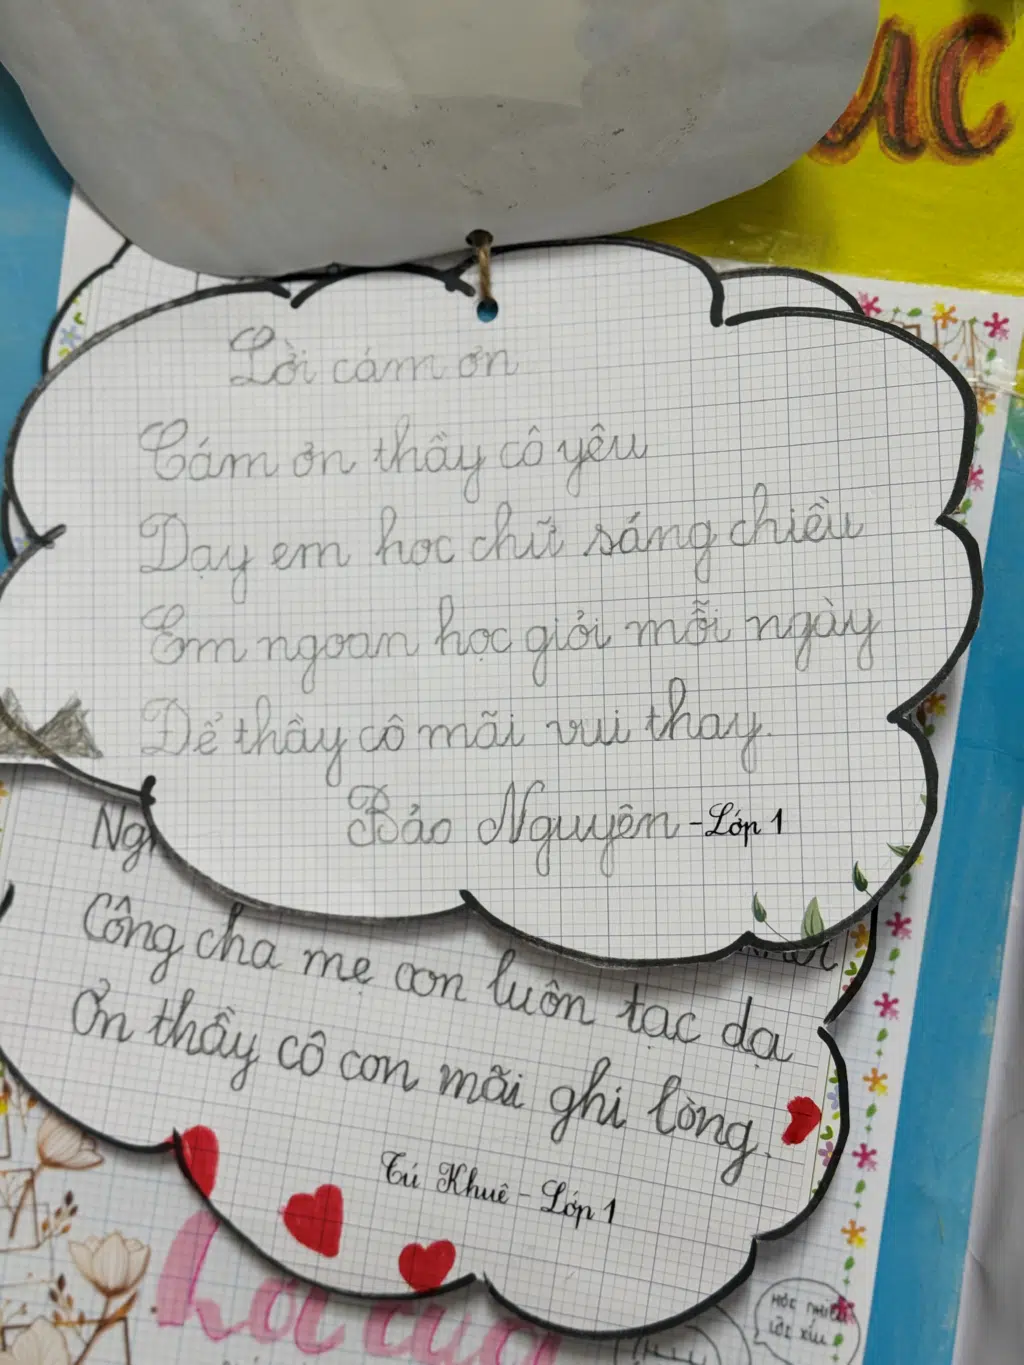 ưc
Lời cám ơn
Cám ơn thầy cô yêu
Dạy em học chữ sáng chiều
Em ngoan học giỏi mỗi ngày
Để thầy cô mãi vui thay.
Bảo Nguyên - Lớp 1
Công cha mẹ con luôn tạc dạ
Ơn thầy cô con mãi ghi lòng.
Tú Khuê - Lớp 1
HÓC NHIỀU
LỜI XÍU